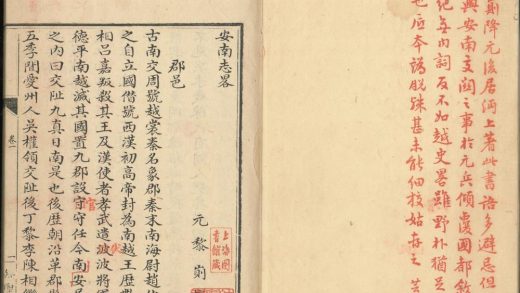 降元後居漢上著此書語多避忌但
與安南交關之事於元兵傾覆國都敘
紀每內詞反不如越史畧雖野朴猶足
也 本譌脫殊甚未能細校姑存之
安南志畧
郡邑
元 黎崱
古南交周號越裳秦名象郡秦末南海尉趙
之自立國僭號西漢初高帝封為南越王歷
相呂嘉叛殺其王及漢使者孝武遣波波將
德平南越滅其國置九郡設守守任今南安
官
之內曰交趾九真日南是也後歷朝沿革郡
五季間愛州人吳權領交趾後丁黎李陳相
卷一